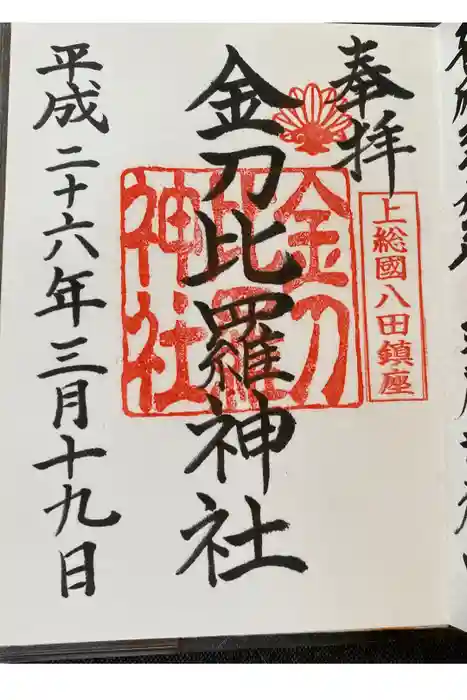 奉拝
上総國八田鎮座
金刀比羅神社
金刀比羅神社
平成二十六年三月十九日